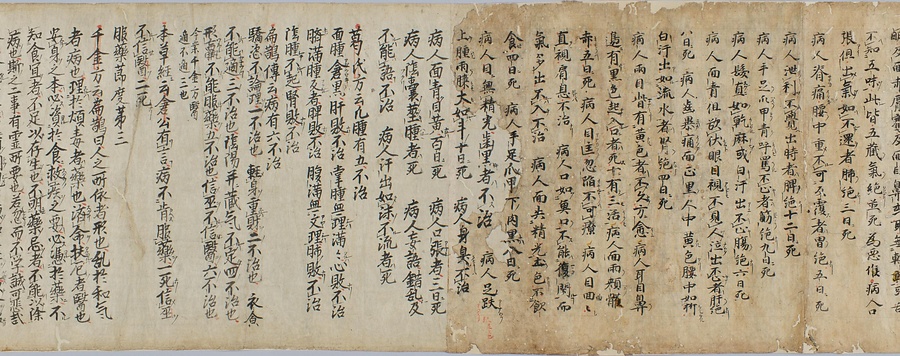 不知五味此皆五藏氣絶並死為思惟病人口
張但出氣如不還者肺絶三日死
病人脊痛腰中重不可反覆者胃絶五日死
病人泄利不覺出時者脾絶十二日死
病人手足爪甲青呼罵不已者筋絶九日死
病人髪直如乾麻或白汗出不已腸絶六日死
病人面青但欲伏眼目視不見人泣出不已者肝絶
八日死 病人齒暴痛面正黒人中黄色腰中如折
白汗出如流水者腎絶四日死
病人兩目眥有黄色者不久方愈 病人耳目鼻
邊有黒色起入口者死十有三活 病人面兩頬
赤五日死 病人目匡忽陷不可療 病人目回
直視肩息不治 病人口如魚口不能復閇而
氣多出不入不治 病人面失精光土色不飲
食四日死 病人手足爪甲下肉黒八日死
病人目無精光齒黒者不治 病人足趺
上腫兩膝大如斗十日死 病人身臭不治
病人面青目黄五百日死 病人口張者三日死
病人陰囊莖腫者死 病人妄語錯乱及
不能語不治 病人汗出如沫不流者死
葛氏方云凡腫有五不治
面腫倉黒肝敗不治 掌腫無理滿心敗不治
臍滿腫反者脾敗不治 腹滿無文理肺敗不治
陰腫不起腎敗不治
扁鵲傳云病有六不治
驕恣不論理一不治也 軽身重財二不治也 衣食
不能適三不治也 陰陽并藏氣不定四不治也
形羸不能服藥五不治也信巫不信醫六不治也
本草經云倉公有言云病不肯服藥一死信巫
不信醫二死
服藥節度第三
千金方云扁鵲曰人之所依者形也乱於和氣
者病也理於煩毒者藥也濟命扶厄者醫也
安身之本必資於食救疾之要必憑於藥不
知食宜者不足以存生也不明藥忌者不能以除
病也斯之二事有霊所要也若忽而不学誠可悲哉